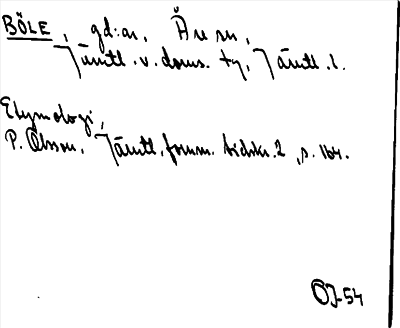 BÖLE, gd:ar, Ås sn,
Jämtl. v. doms. tg, Jämtl. l.
Etymologi,
P. Olsson, Jämtl. fornm. tidskr. 2, s. 164.
OJ-54